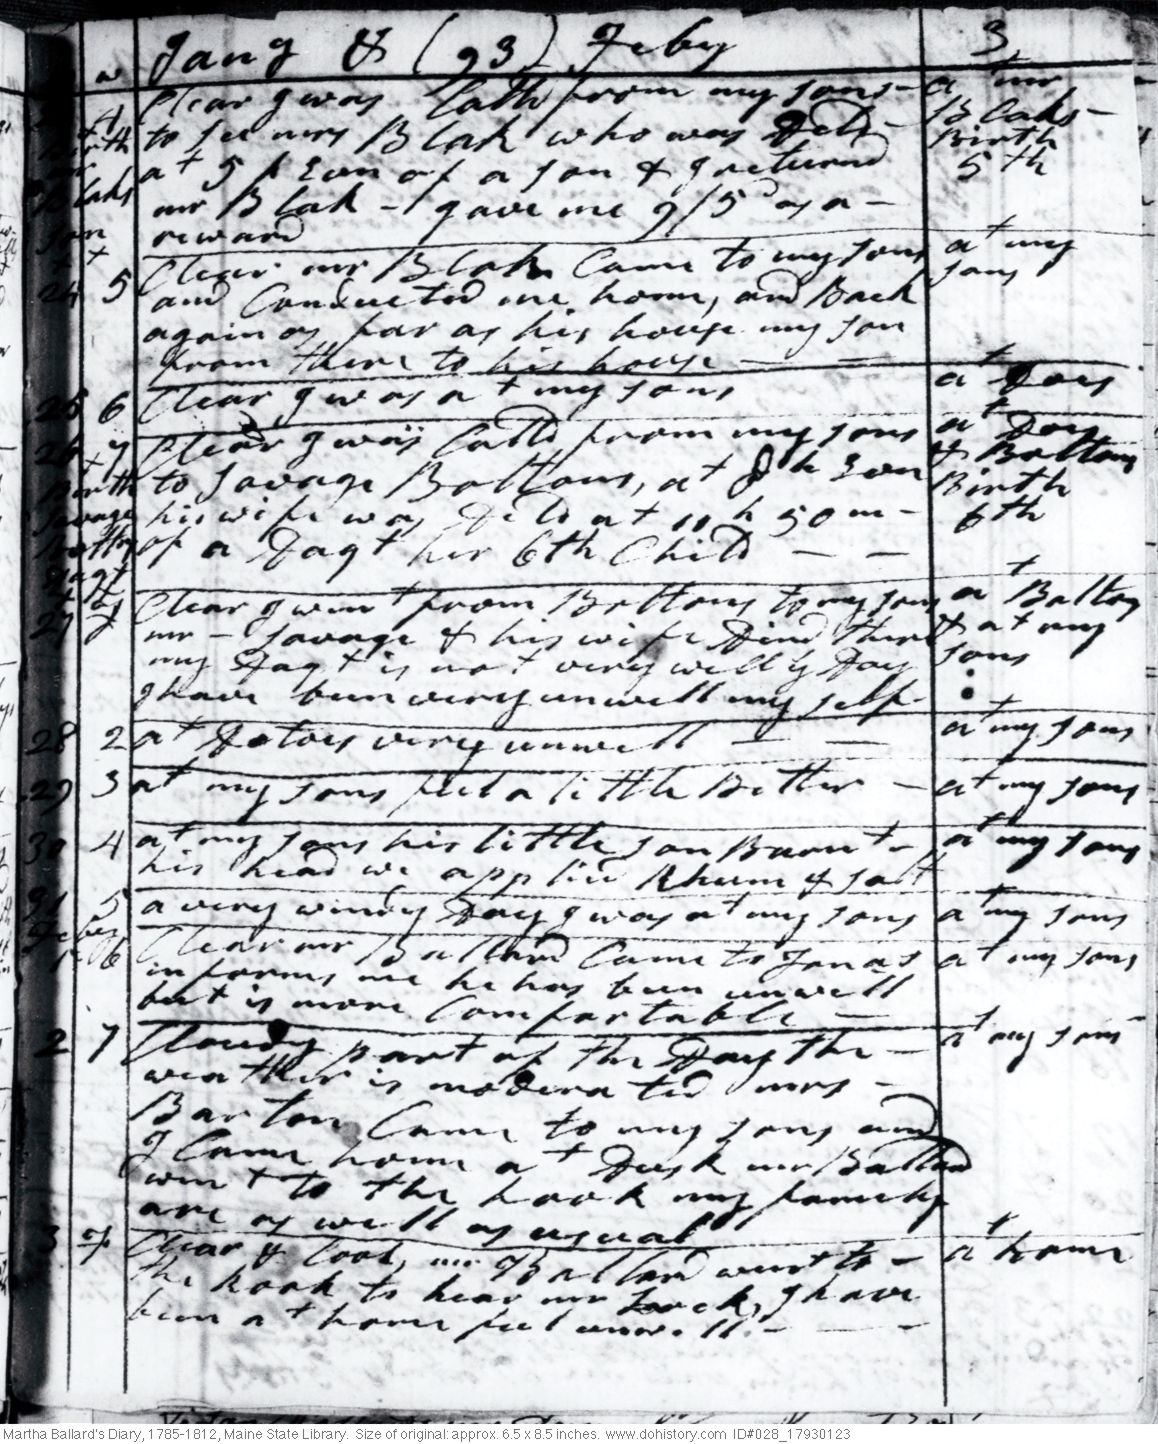 w Jany & (93) Feby 3
4 Clear I was Calld from my sons - at mr
to see mrs Blak who was Deld - Blaks -
Birth at 5 h Evn of a son & I returnd Birth
mr Blaks mr Blak - gave me 9/5 as a - 5th
son reward
24 5 Clear mr Blak Came to my sons at my
and Conducted me home, and Back sons
again as far as his house my son
from there to his house -
25 6 Clear I was at my sons at Dois
26 7 Clear I was Calld from my sons at Dois
to Savage Boltons, at 8 h Evn & Boltons
Birth his wife was Deld at 11 h 50 m - Birth
Savage of a Dagt her 6th Child - - 6th
Boltons
Dagt
27 Clear I went from Boltons to my sons at Boltons
mr - Savage & his wife Dind there & at my
my Dagt is not very well by Day sons
I have been very unwell my self
28 2 at Ditois very unwell - - at my sons
29 3 at my sons feel a little Better - at my sons
30 4 at my sons his little son Burnt - at my sons
his head we applied Rhum & salt
31 5 a very windy Day I was at my sons at my sons
Feby
1 6 Clear mr Ballard Came to Jonas at my sons
informs me he has been unwell
but is more Comfortable -
2 7 Cloudy part of the Day the - at my sons
weather is moderated mrs -
Barton Came to my sons and
I Came home at Dusk mr Ballard
went to the hook my family
are as well as usual
3 Clear & Cool, mr Ballard went to - at home
the hook to hear mr, I have
been at home feel unwell. -
Martha Ballard's Diary, 1785-1812, Maine State Library. Size of original: approx. 6.5 x 8.5 inches. www.dohistory.com ID#028_17930123